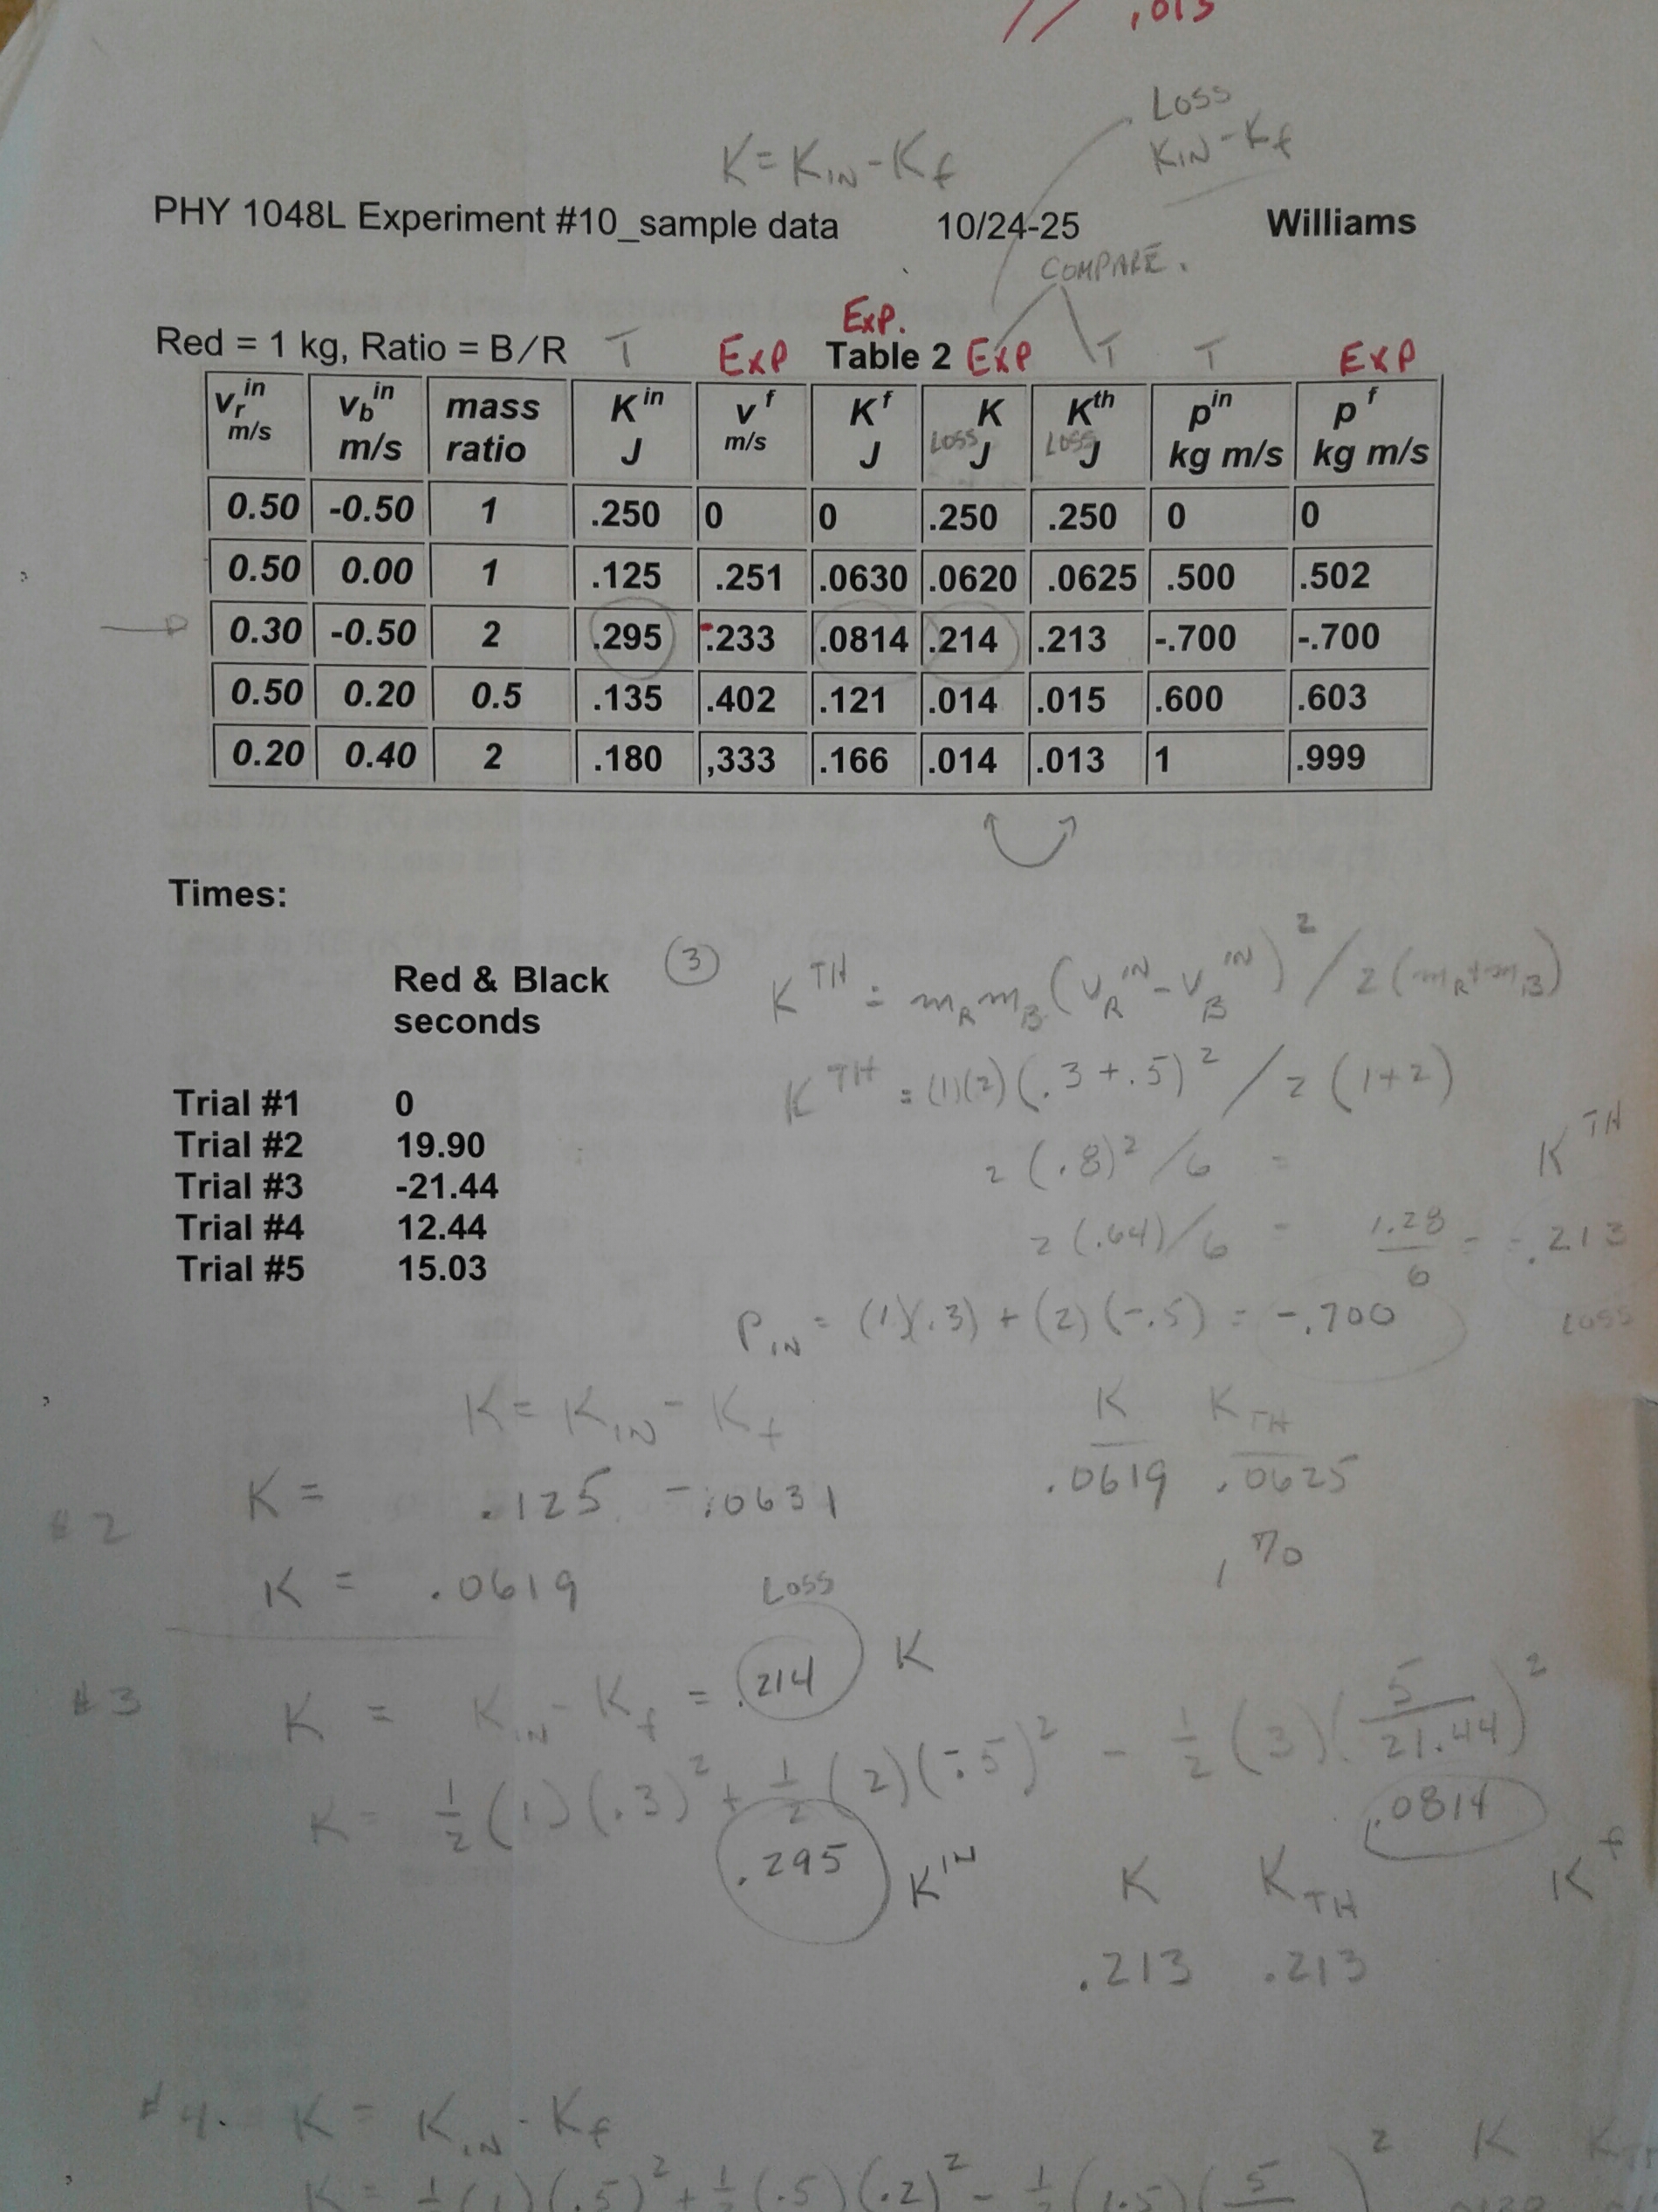 // .013
LOSS
K = K_IN - K_f
K_IN - K_f
PHY 1048L Experiment #10_sample data 10/24-25 Williams
COMPARE.
Exp.
Red = 1 kg, Ratio = B/R T EXP Table 2 EXP T T EXP
v_r^in m/s v_b^in m/s mass ratio K^in J v^f m/s K^f J K LOSS J K^th LOSS J p^in kg m/s p^f kg m/s
0.50 -0.50 1 .250 0 0 .250 .250 0 0
0.50 0.00 1 .125 .251 .0630 .0620 .0625 .500 .502
0.30 -0.50 2 .295 -.233 .0814 .214 .213 -.700 -.700
0.50 0.20 0.5 .135 .402 .121 .014 .015 .600 .603
0.20 0.40 2 .180 ,333 .166 .014 .013 1 .999
Times:
Red & Black
seconds
③ K^TH = m_R m_B (v_R^IN - v_B^IN)^2 / 2(m_R + m_B)
K^TH = (1)(2)(.3 + .5)^2 / 2(1+2)
Trial #1 0
Trial #2 19.90
Trial #3 -21.44
Trial #4 12.44
Trial #5 15.03
2(.8)^2/6 = K^TH
2(.64)/6 - 1.28/6 = .213
P_IN = (1)(.3) + (2)(-.5) = -.700 LOSS
K = K_IN - K_f
K K_TH
#2 K = .125 - .0631
.0619 .0625
K = .0619
, %
LOSS
#3 K = K_IN - K_f = .214 K
K = 1/2(1)(.3)^2 + 1/2(2)(-.5)^2 - 1/2(3)(5/21.44)^2
.295 K^IN
.0814 K^f
K K_TH
.213 .213
#4. K = K_IN - K_f
K = 1/2(1)(.5)^2 + 1/2(.5)(.2)^2 - 1/2(1.5)(5 )^2 K